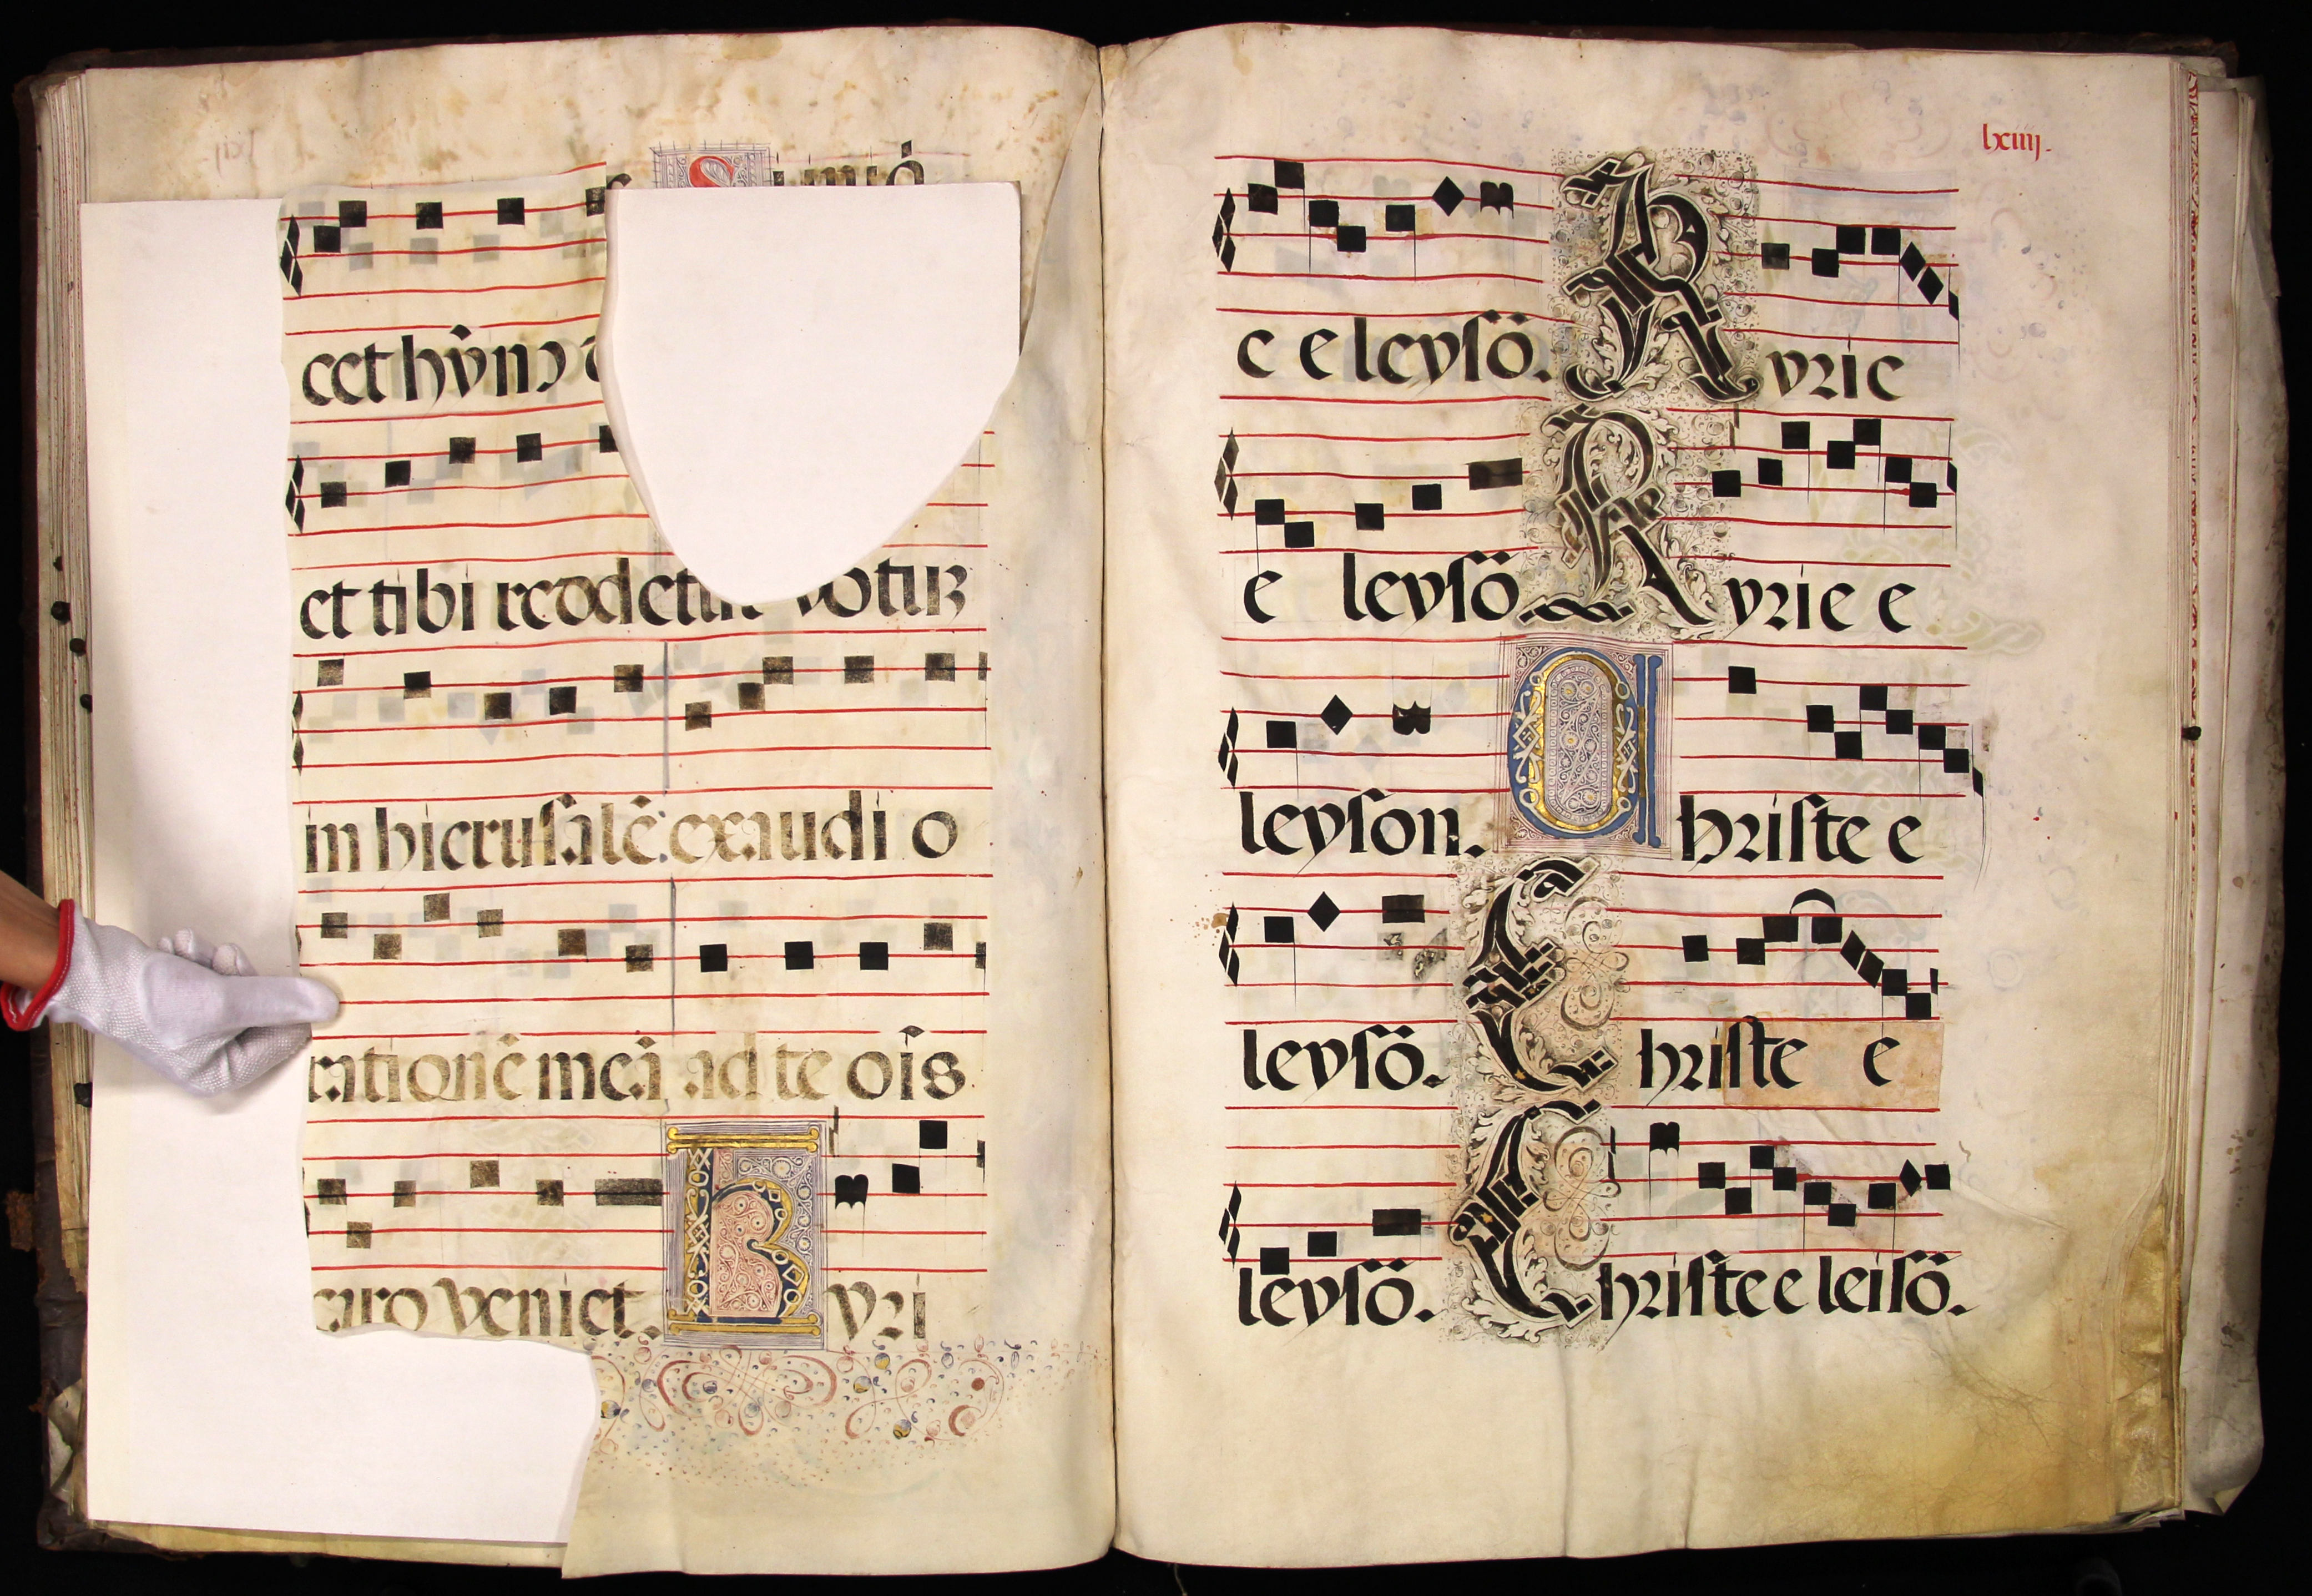 cet hȳmꝰ
et tibi reddetur votuꝫ
in hierusalē: exaudi o
rationē meā ad te oīs
caro veniet. Kyri
lxiiij.
e eleysō. Kyrie
e leysō Kyrie e
leyson. Christe e
leysō. Christe e
leysō. Christe e leisō.